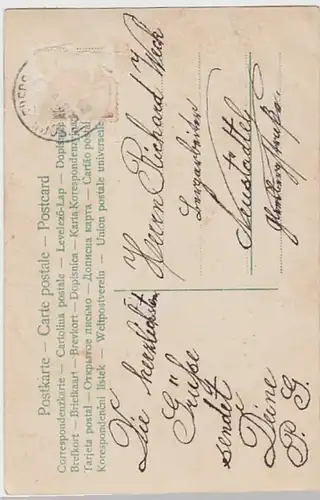 Postkarte — Carte postale — Postcard
Correspondenzkarte — Cartolina postale — Levelező-Lap — Dopisnice
Brefkort — Briefkaart — Brevkort — Dopisnica — Karta Korespondencyjna
Tarjeta postal — Открытое письмо — Дописна карта — Cartão postal
Korespondenční lístek — Weltpostverein — Union postale universelle
Die herzlichsten
Grüße
sendet
Deine
P. G.
Herrn Richard
Neustädtel